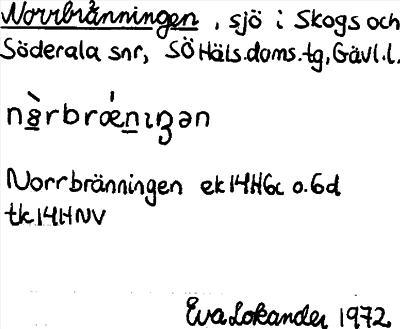 Norrbränningen, sjö i Skogs och
Söderala snr, SÖHäls.doms.tg, Gävl.l.
nå̀rbrǽnıŋən
Norrbränningen ek14H6c o.6d
tk14HNV
Eva Lokander 1972